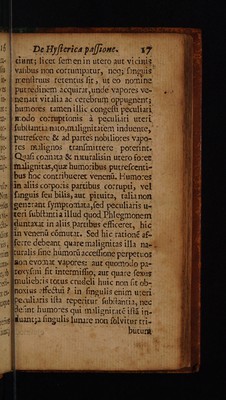 De Hysterica passione. 17
ciunt; licet semen in utero aut vicinis
vasibus non corrumpatur, neq; singuis
menstruus retentus sit, ut eo nomine
putredinem acquirat, unde vapores ve-
nenati vitalia ac cerebrum oppugnent;
humores tamen illic congesti peculiari
modo corruptionis à peculiari uteri
substantia nato, malignitatem induente,
putrescere & ad partes nobiliores vapo-
res malignos transmittere poterint.
Quasi connata & naturalis in utero foret
malignitas, quæ humoribus putrescenti-
bus hoc contribueret venenū. Humores
in aliis corporis partibus corrupti, vel
singuis seu bilis, aut pituita, talia non
generant symptomata, sed peculiaris u-
teri substantia illud quod Phlegmonem
in aliis partibus efficeret, hic
in venenū cōmutat. Sed hic rationē af-
ferre debeant, quare malignitas illa na-
turalis sine humorū accessione perpetuos
non evomat vapores: aut quomodo pa-
roxysmi fit intermissio, aut quare sexus
muliebris totus crudeli huic non sit ob-
noxius affectui? in singulis enim uteri
peculiaris ista reperitur substantia, nec
desint humores qui malignitatē istā in-
duant; à singulis lunare non solvitur tri-
butum